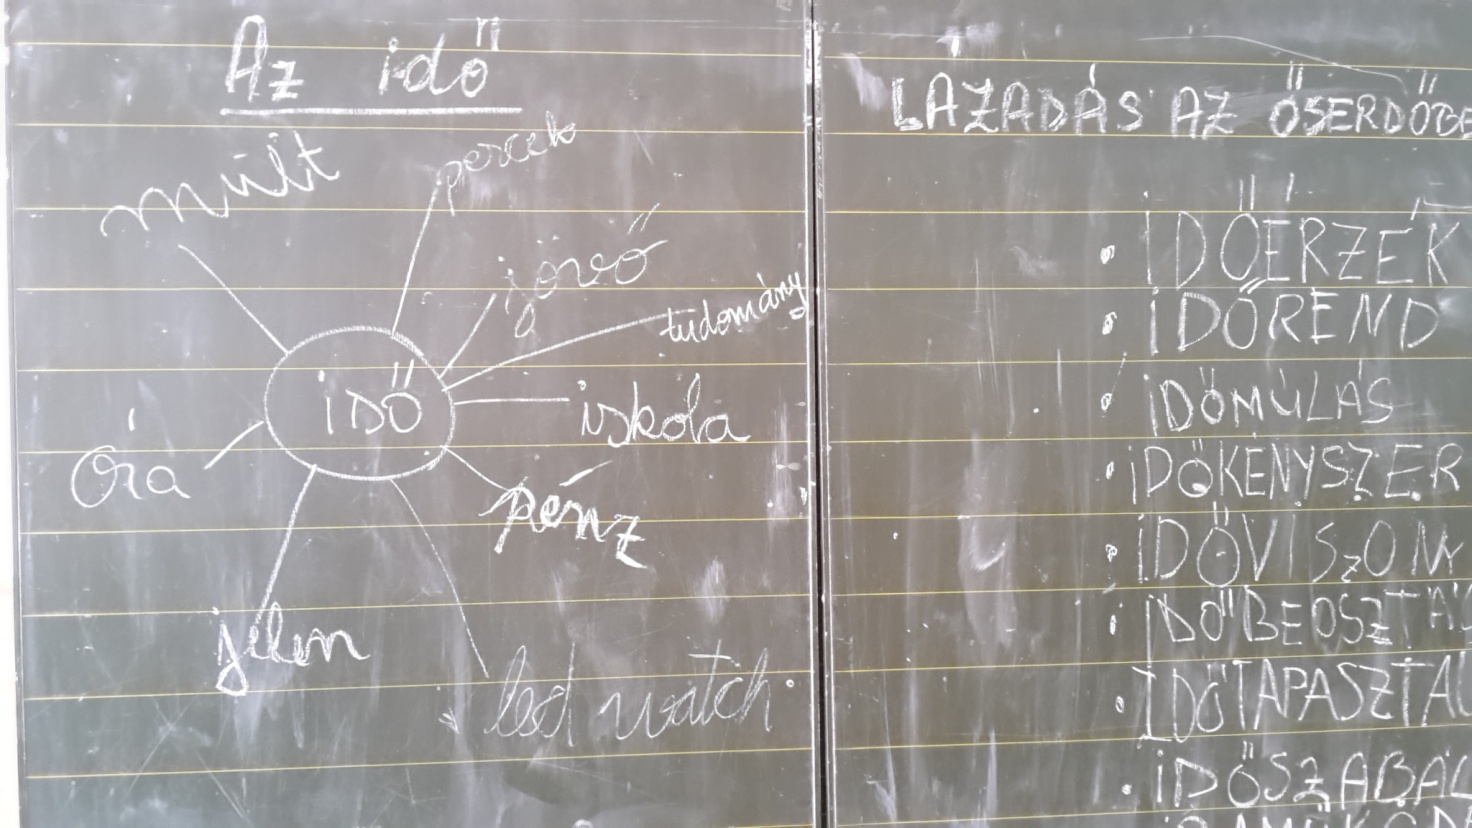 Az idő
múlt
percek
jövő
tudomány
iskola
IDŐ
Óra
pénz
jelen
led watch
LÁZADÁS AZ ŐSERDŐBE
IDŐÉRZÉK
IDŐREND
IDŐMÚLÁS
IDŐKÉNYSZER
IDŐVISZONY
IDŐBEOSZTÁS
IDŐTAPASZTAL
IDŐSZABÁL